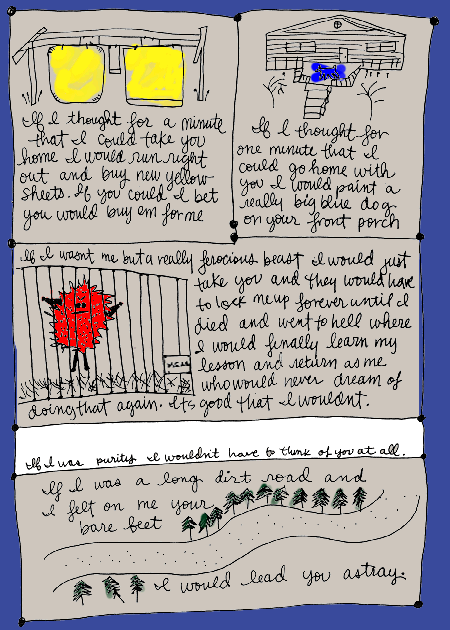 If I thought for a minute
that I could take you
home I would run right
out and buy new yellow
sheets. If you could I bet
you would buy em for me
If I thought for
one minute that I
could go home with
you I would paint a
really big blue dog
on your front porch
If I wasn't me but a really ferocious beast I would just
take you and they would have
to lock me up forever until I
died and went to hell where
I would finally learn my
lesson and return as me
who would never dream of
doing that again. Its good that I wouldn't.
If I was purity I wouldn't have to think of you at all.
If I was a long dirt road and
I felt on me your
bare feet
I would lead you astray.